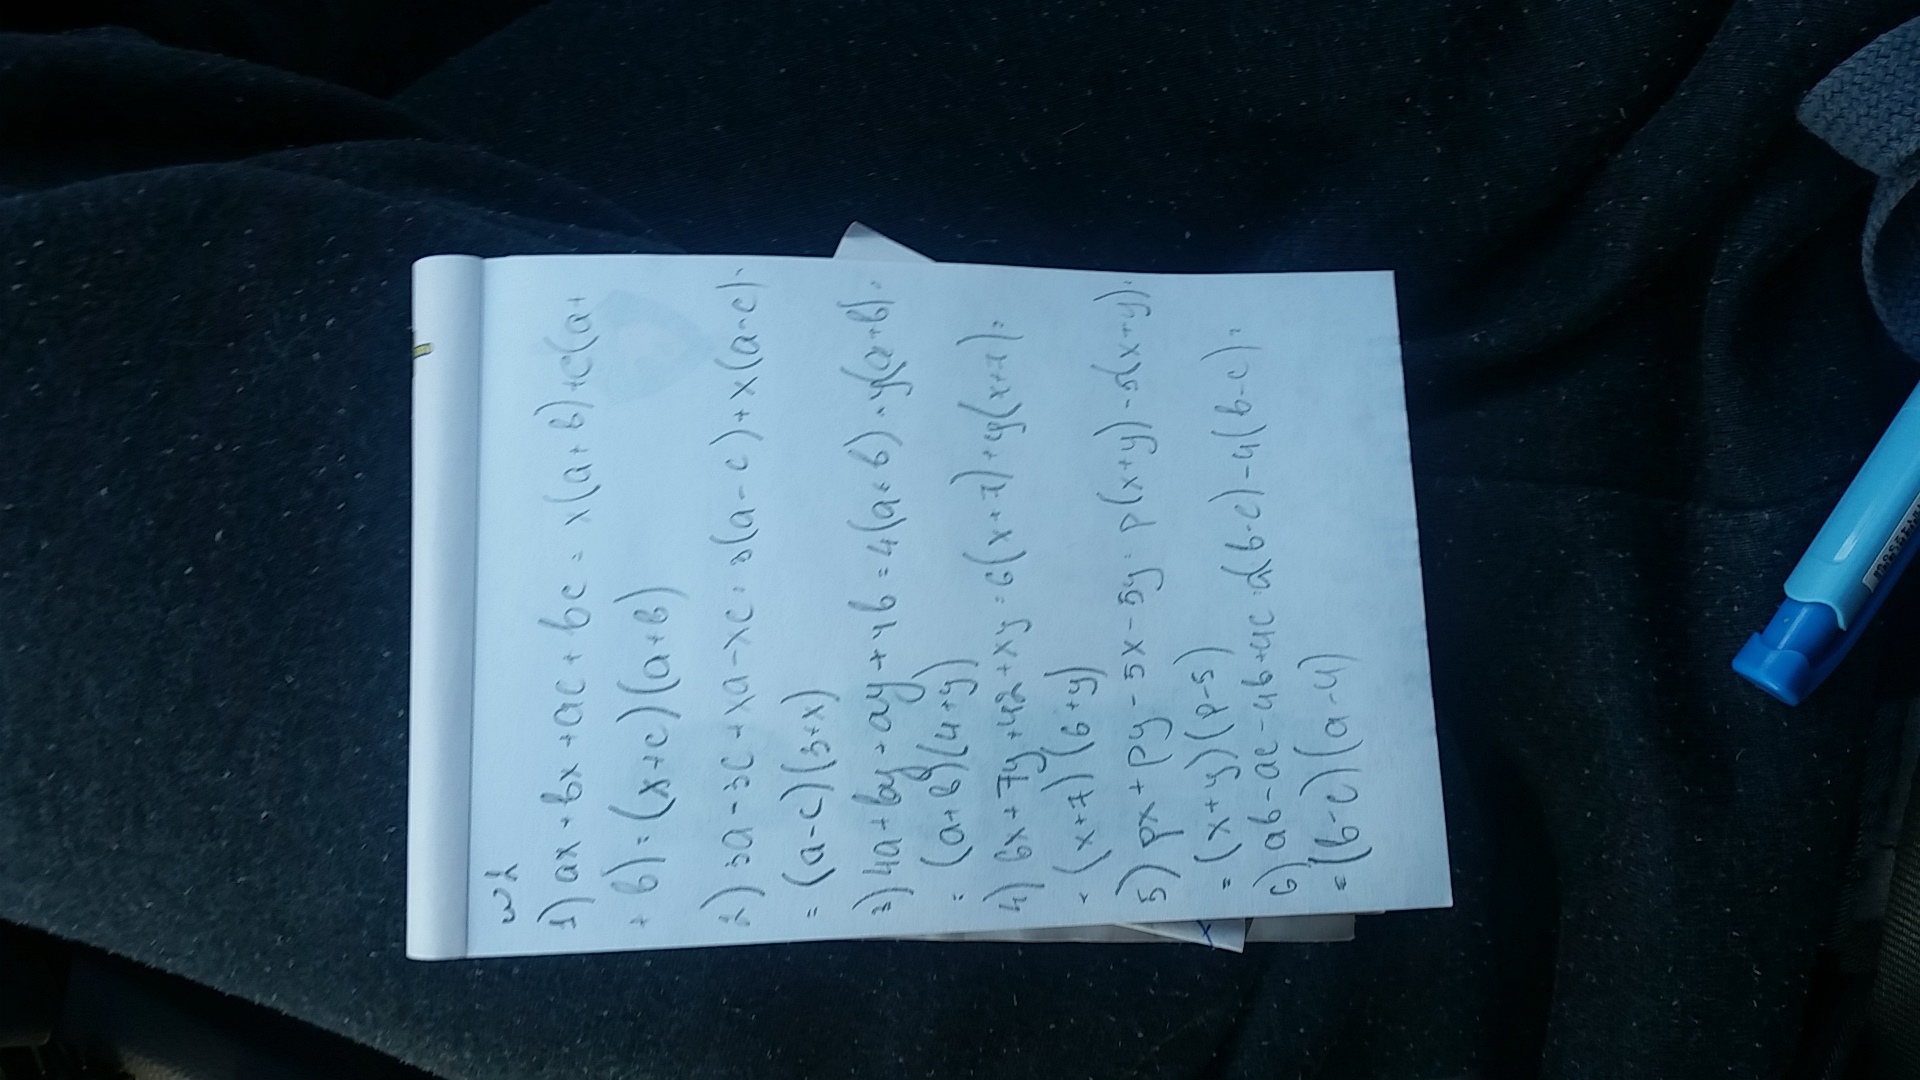 w1
1) ax + bx + ac + bc = x(a + b) + c(a +
+ b) = (x+c)(a+b)
2) 3a - 3c + xa - xc = 3(a - c) + x(a - c) =
= (a-c)(3+x)
3) 4a + by + ay + 4b = 4(a + b) + y(a + b) =
= (a+b)(4+y)
4) 6x + 7y + 42 + xy = 6(x + 7) + y(x+7) =
= (x+7)(6+y)
5) px + py - 5x - 5y = p(x+y) - 5(x+y) =
= (x+y)(p-5)
6) ab - ac - 4b + 4c = a(b-c) - 4(b-c) =
= (b-c)(a-4)